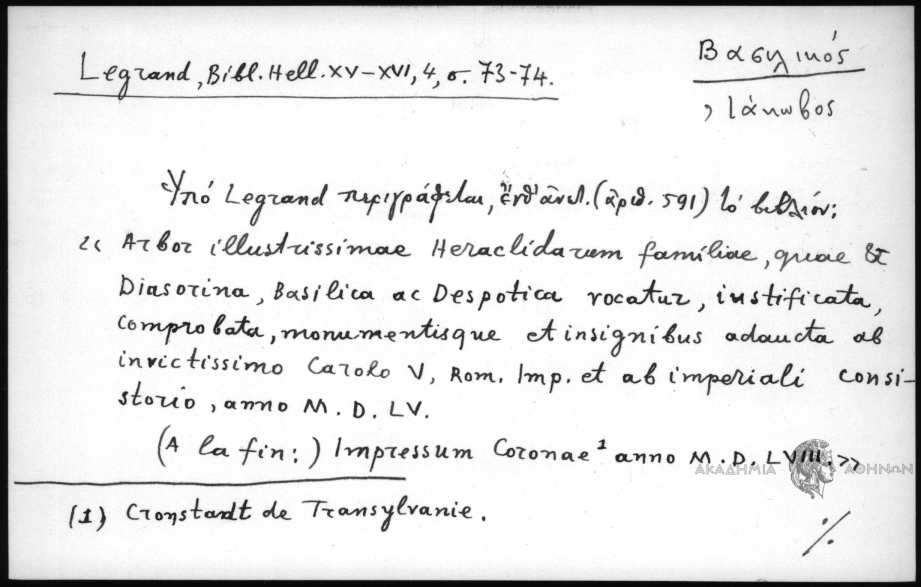 Legrand, Bibl. Hell. XV–XVI, 4, σ. 73-74.
Βασιλικός
, Ιάκωβος
Ὑπό Legrand περιγράφεται, ἔνθ' ἀνωτ. (ἀριθ. 591) τό βιβλίον:
« Arbor illustrissimae Heraclidarum familiae, quae &
Diasorina, Basilica ac Despotica vocatur, iustificata,
comprobata, monumentisque et insignibus adaucta ab
invictissimo Carolo V, Rom. Imp. et ab imperiali consi-
storio, anno M. D. LV.
(A la fin:) Impressum Coronae¹ anno M. D. LVIII. »
ΑΚΑΔΗΜΙΑ ΑΘΗΝΩΝ
(1) Cronstardt de Transylvanie.
./.